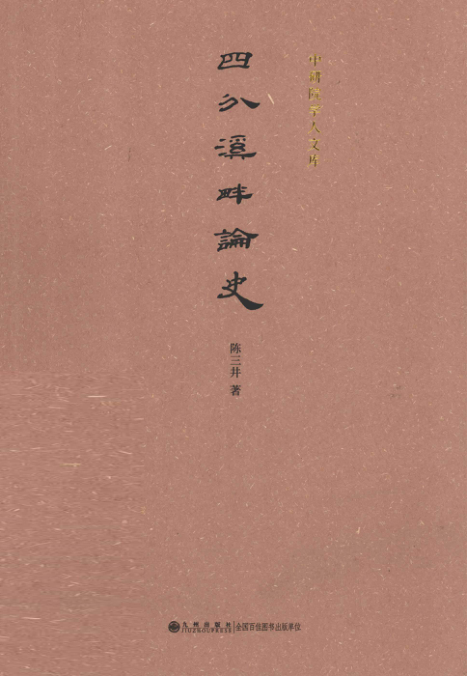 中研院学人文库
四分溪畔論史
陈三井 著
九州出版社
JIUZHOUPRESS
全国百佳图书出版单位